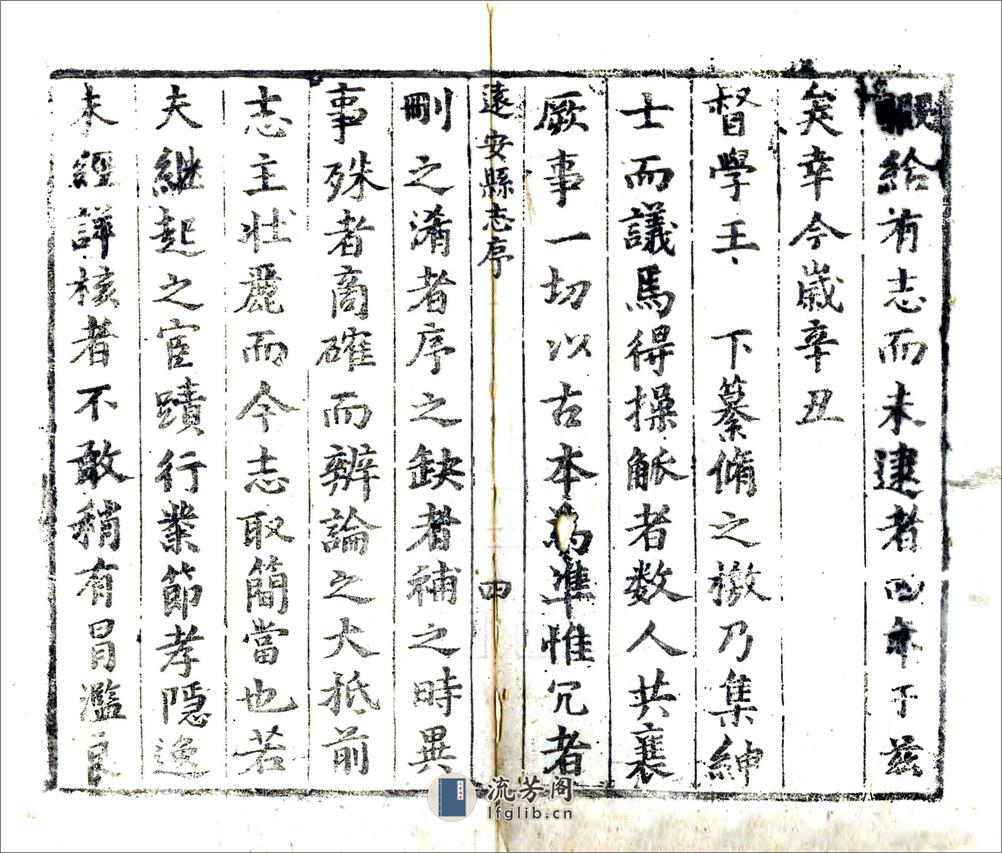 暇給有志而未逮者四年于茲
矣幸今歲辛丑
督學王 下纂脩之檄乃集紳
士而議焉得操觚者数人共襄
厥事一切以古本為準惟冗者
遠安縣志序 四
刪之淆者序之缺者補之時異
事殊者商確而辨論之大抵前
志主壯麗而今志取簡當也若
夫継起之宦蹟行業節孝隱逸
未經詳核者不敢稍有冒濫良
流芳阁
lfglib.cn